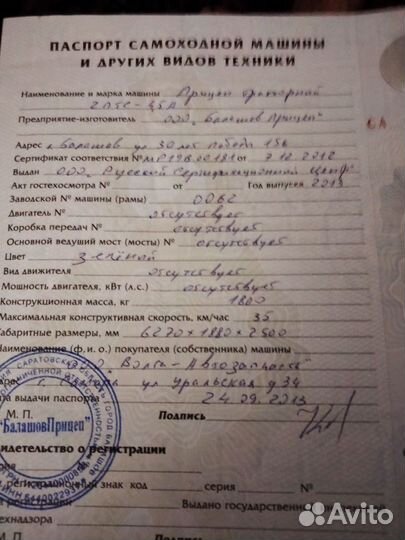 ПАСПОРТ САМОХОДНОЙ МАШИНЫ
И ДРУГИХ ВИДОВ ТЕХНИКИ
Наименование и марка машины Прицеп тракторный
2ПТС-4,5А
Предприятие-изготовитель ООО "Балашов Прицеп"
Адрес г. Балашов ул 30 лет победы 156
Сертификат соответствия № МР19В00181 от 7.12.2012
Выдан ООО "Русский Сертификационный Центр"
Акт гостехосмотра № от Год выпуска 2013
Заводской № машины (рамы) 0062
Двигатель № отсутствует
Коробка передач № отсутствует
Основной ведущий мост (мосты) № отсутствует
Цвет зелёный
Вид движителя отсутствует
Мощность двигателя, кВт (л.с.) отсутствует
Конструкционная масса, кг 1800
Максимальная конструктивная скорость, км/час 35
Габаритные размеры, мм 6270×1880×2500
Наименование (ф. и о.) покупателя (собственника) машины
Волга-Автозапчасть"
ул Уральская д 34
та выдачи паспорта 24.09.2013
М. П. Подпись
"БалашовПрицеп"
видетельство о регистрации
регистрационный знак код серия №
регистрации Выдано государственной
технадзора
М. П. Подпись
Avito